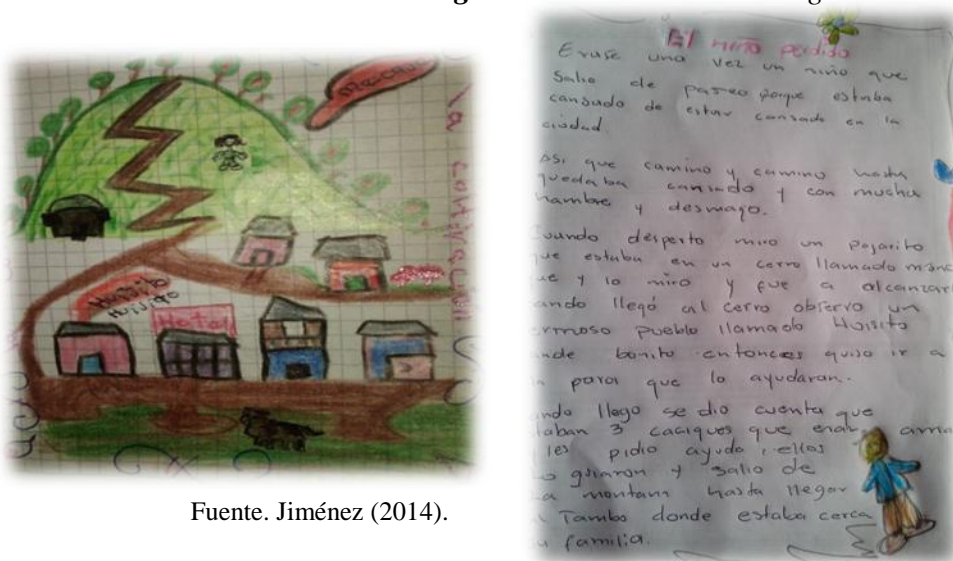 Manchaque
la construcción
Huisito
Huisito
Hotel
Fuente. Jiménez (2014).
El niño perdido
Eruse una vez un niño que
Salio de paseo porque estaba
cansado de estar cansado en la
ciudad.
Asi que camino y camino hasta
quedaba cansado y con mucha
hambre y desmayo.
desperto miro un pajarito
que estaba en un cerro llamado
y lo miro y fue a alcanzar
llegó al cerro obserbo un
pueblo llamado Huisito
bonito entonces quiso ir a
que lo ayudaran.
llego se dio cuenta que
3 caciques que eran
les pidio ayuda, ellos
y salio de
montaña hasta llegar
Tambo donde estaba cerca
familia.